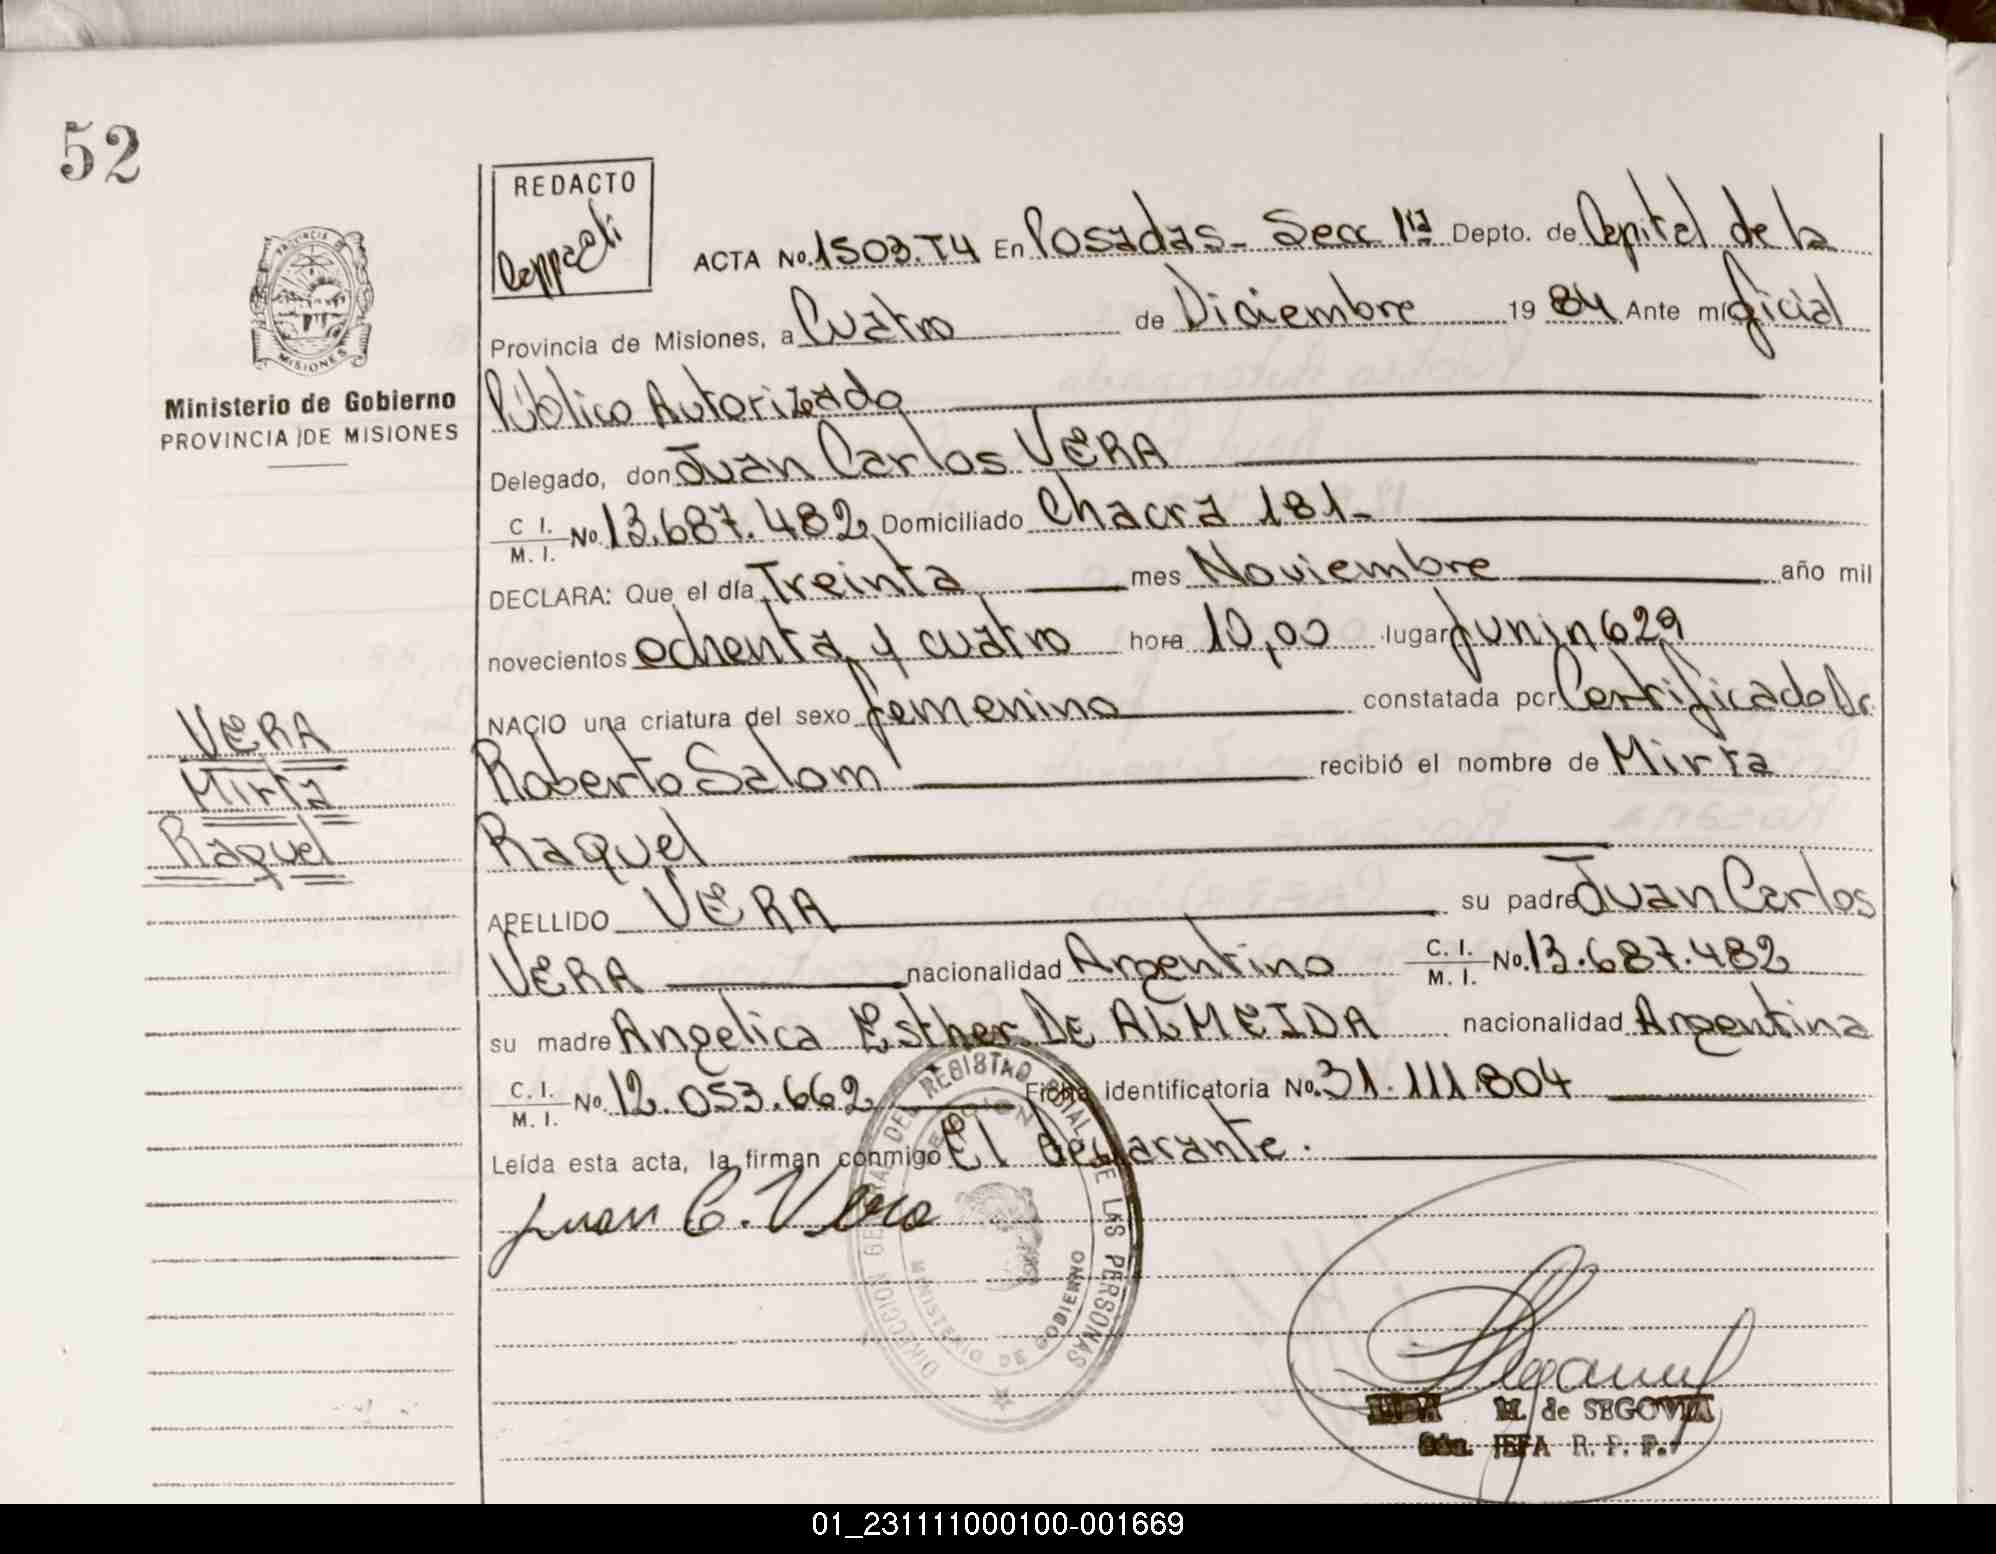 52
REDACTO
Ceppaeli
ACTA No. 1503.T4 En Posadas - Secc 1ra Depto. de Capital de la
Provincia de Misiones, a Cuatro de Diciembre 19 84 Ante mí Oficial
Público Autorizado
Delegado, don Juan Carlos VERA
C I. / M. I. No. 13.687.482 Domiciliado Chacra 181-
DECLARA: Que el día Treinta mes Noviembre año mil
novecientos ochenta y cuatro hora 10,00 lugar Junin 629
NACIO una criatura del sexo femenino constatada por Certificado Dr.
Roberto Salom recibió el nombre de Mirta
Raquel
APELLIDO VERA su padre Juan Carlos
VERA nacionalidad Argentino C. I. / M. I. No. 13.687.482
su madre Angelica Esther De ALMEIDA nacionalidad Argentina
C. I. / M. I. No. 12.053.662 Ficha identificatoria No. 31.111.804
Leída esta acta, la firman conmigo El declarante.
Juan C. Vera
PROVINCIA
MISIONES
Ministerio de Gobierno
PROVINCIA DE MISIONES
VERA
Mirta
Raquel
DIRECCION GENERAL DEL REGISTRO DE LAS PERSONAS
MINISTERIO DE GOBIERNO
M. de SEGOVIA
JEFA R. P. P.
01_231111000100-001669